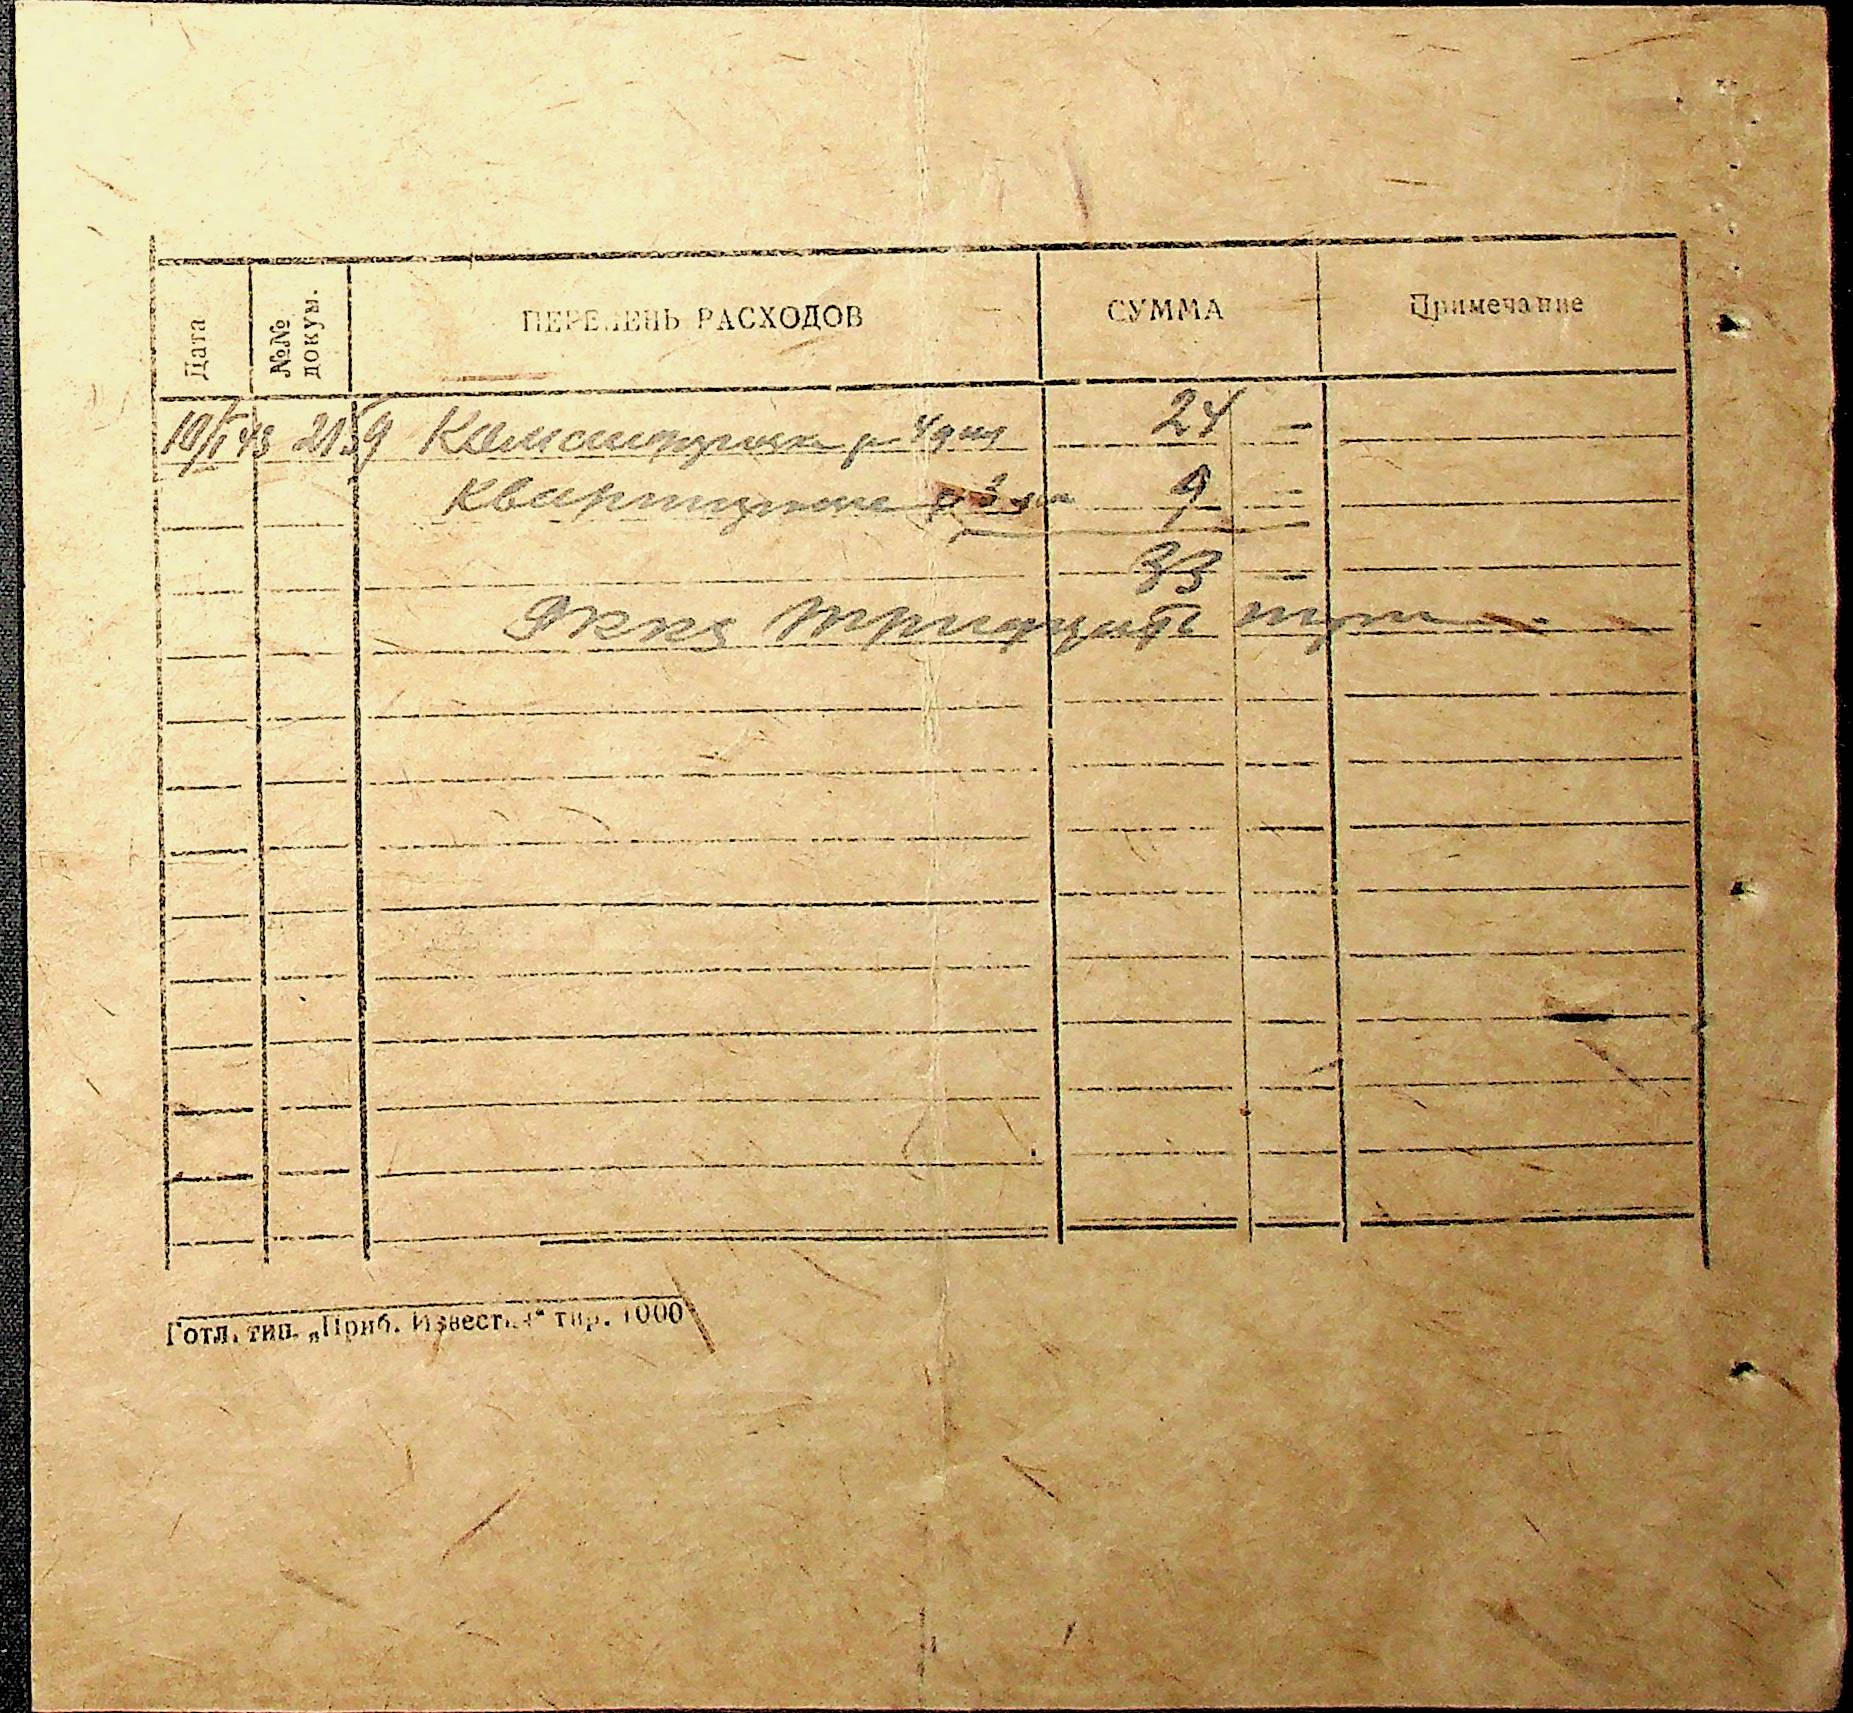 Дата №№ докум. ПЕРЕЧЕНЬ РАСХОДОВ СУММА Примечание
10/I 43 2159 Командировочн за 4 дня 24 —
Квартирные за 3 дн 9 —
33 —
тридцать три
Готл. тип. „Приб. Известия“ тир. 1000